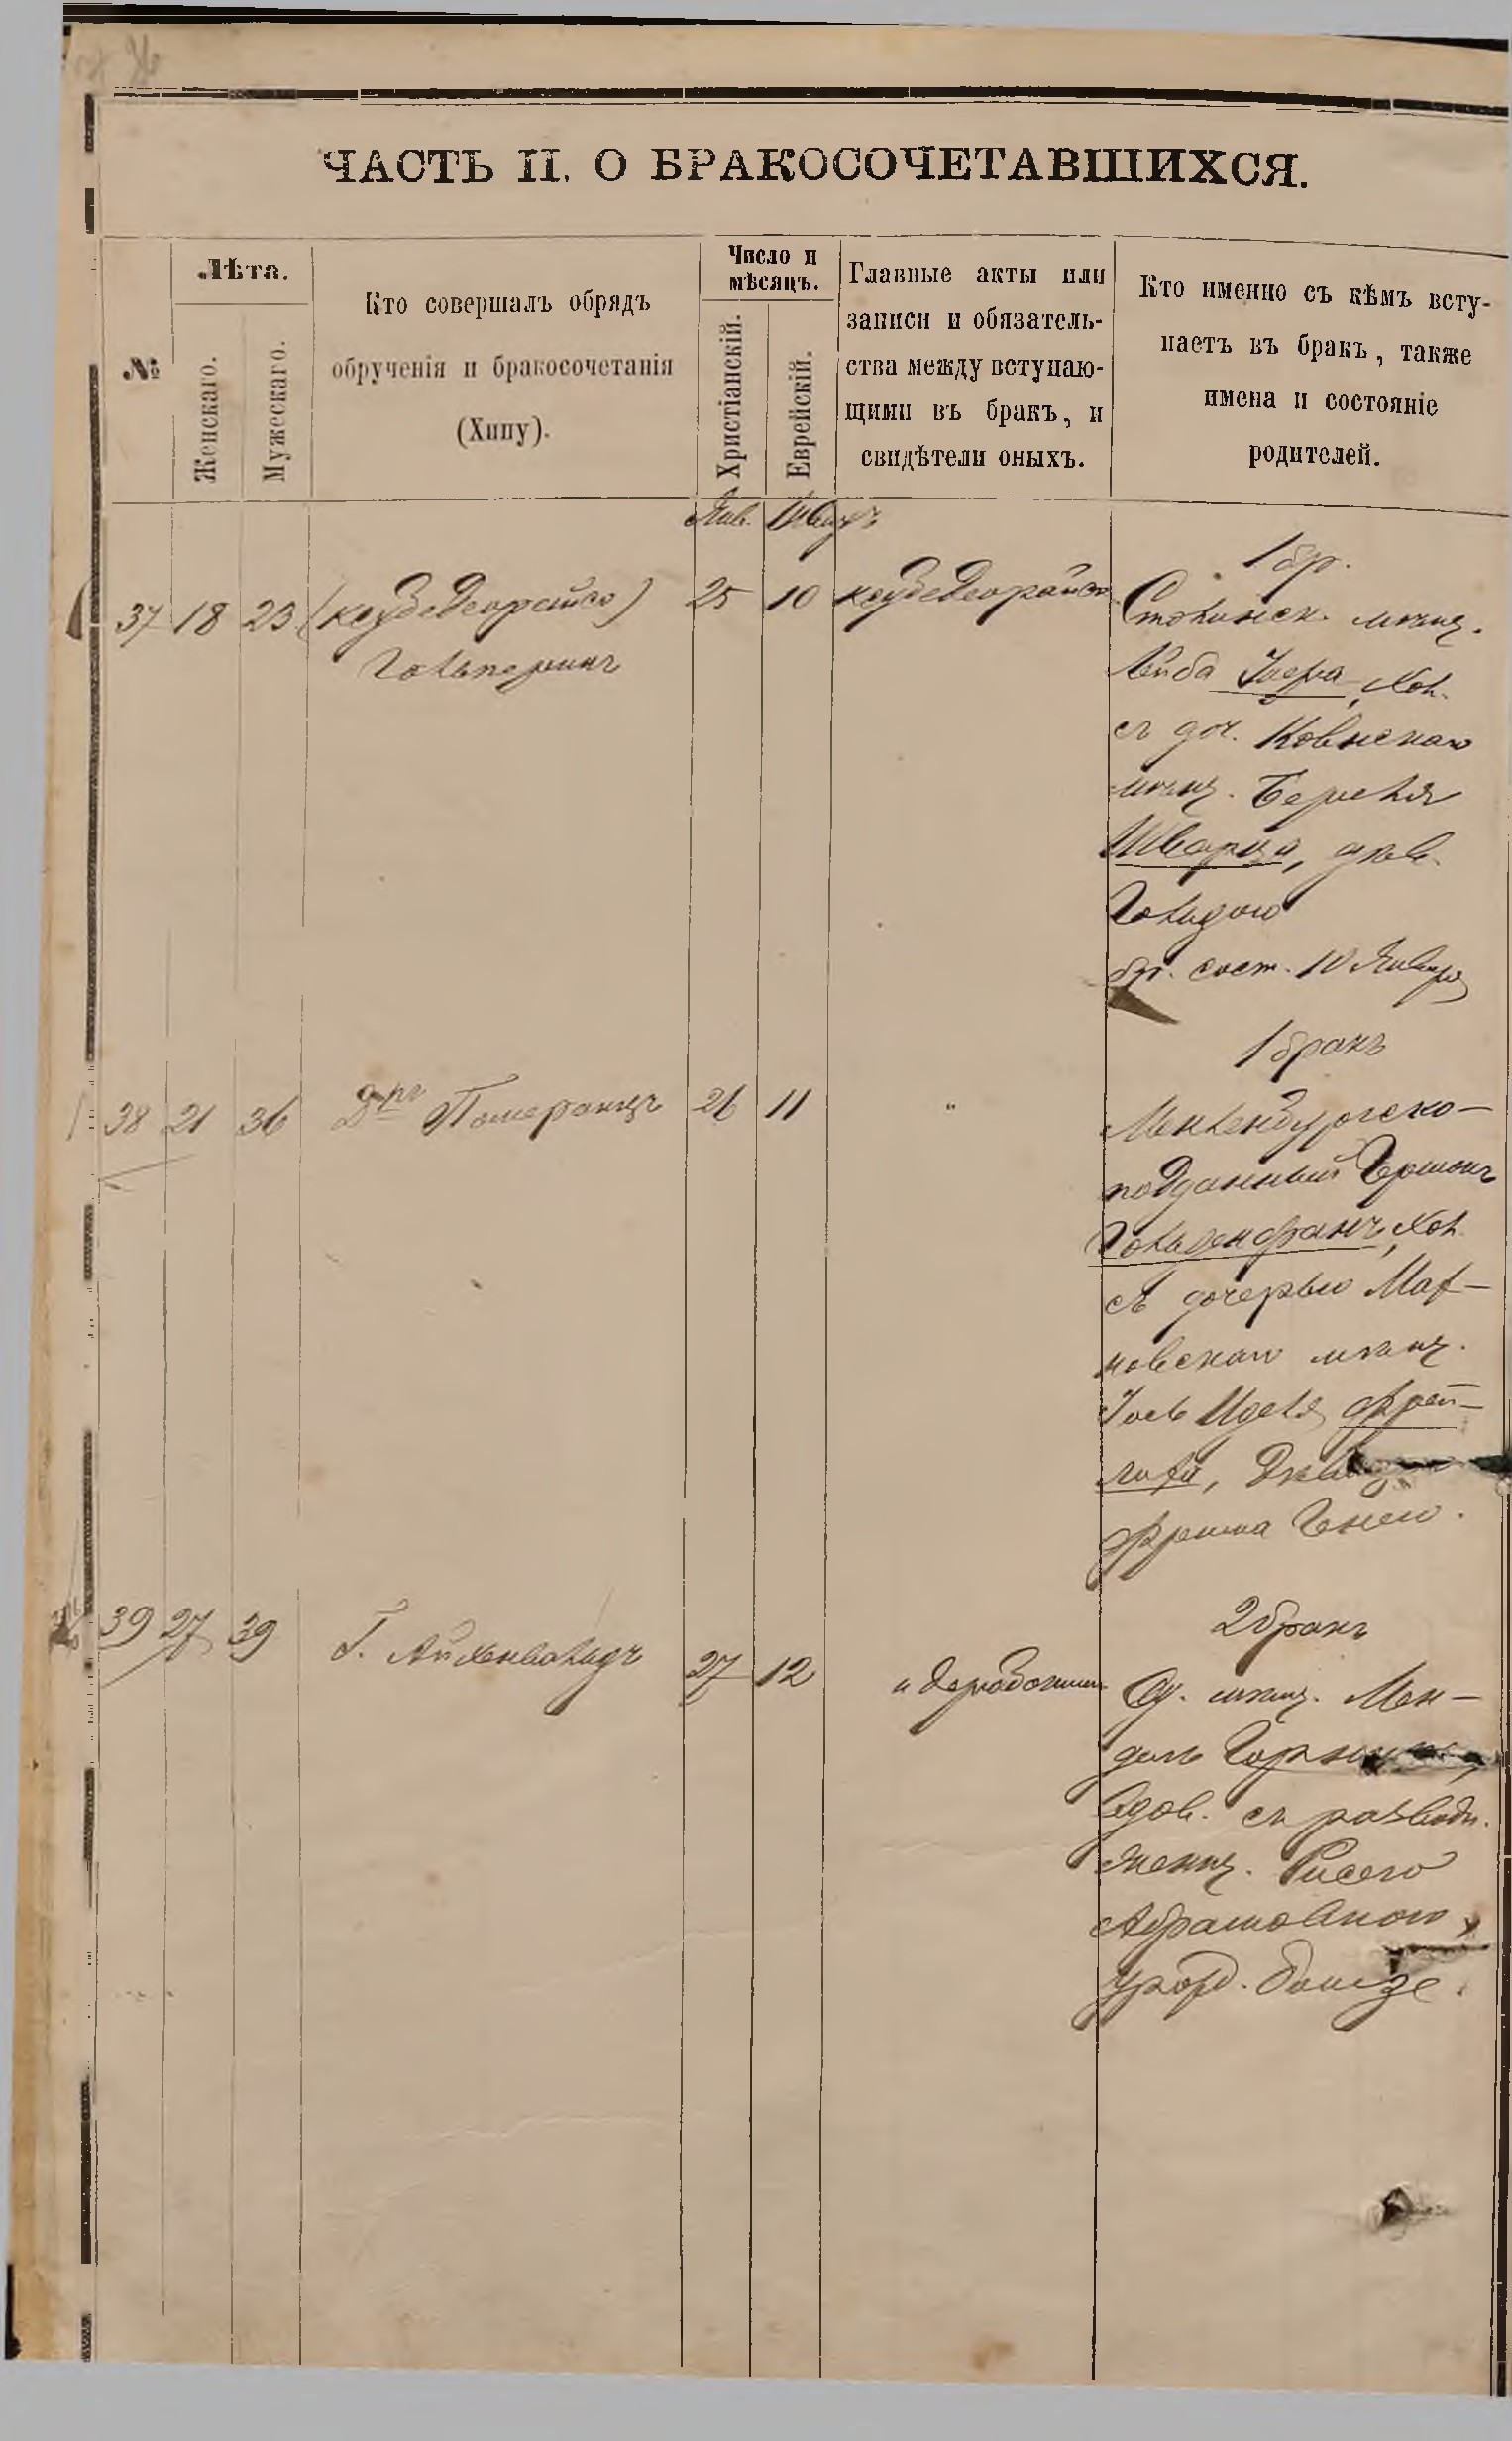 ЧАСТЬ II. О БРАКОСОЧЕТАВШИХСЯ.
№
Лѣта.
Женскаго.
Мужескаго.
Кто совершалъ обрядъ
обрученія и бракосочетанія
(Хипу).
Число и
мѣсяцъ.
Христіанскій.
Еврейскій.
Главные акты или
записи и обязатель-
ства между вступаю-
щими въ бракъ, и
свидѣтели оныхъ.
Кто именно съ кѣмъ всту-
паетъ въ бракъ, также
имена и состояніе
родителей.
Янв. Шватъ
37 18 23
Гольперинъ
25 10
1 бр.
мѣщ.
Лейба Хол.
съ доч. Ковнскаго
мѣщ. Береля
Шварца, дѣв.
Голидою
бр. сост. 10 Января
38 21 36 Дръ Померанцъ 26 11 "
1 бракъ
Мекленбургско-
подданный Гершонъ
Хол.
съ дочерью Мах-
новскаго мѣщ.
Фрей-
Фрейма Генею.
39 27 39 Г. Айхенвальдъ 27 12
2 бракъ
Од. мѣщ. Мен-
дель
вдов. съ разводн.
женщ. Рисею
Абрамовною,
урожд.